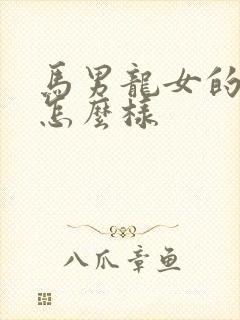 馬男龍女的
怎麼樣
八爪章鱼